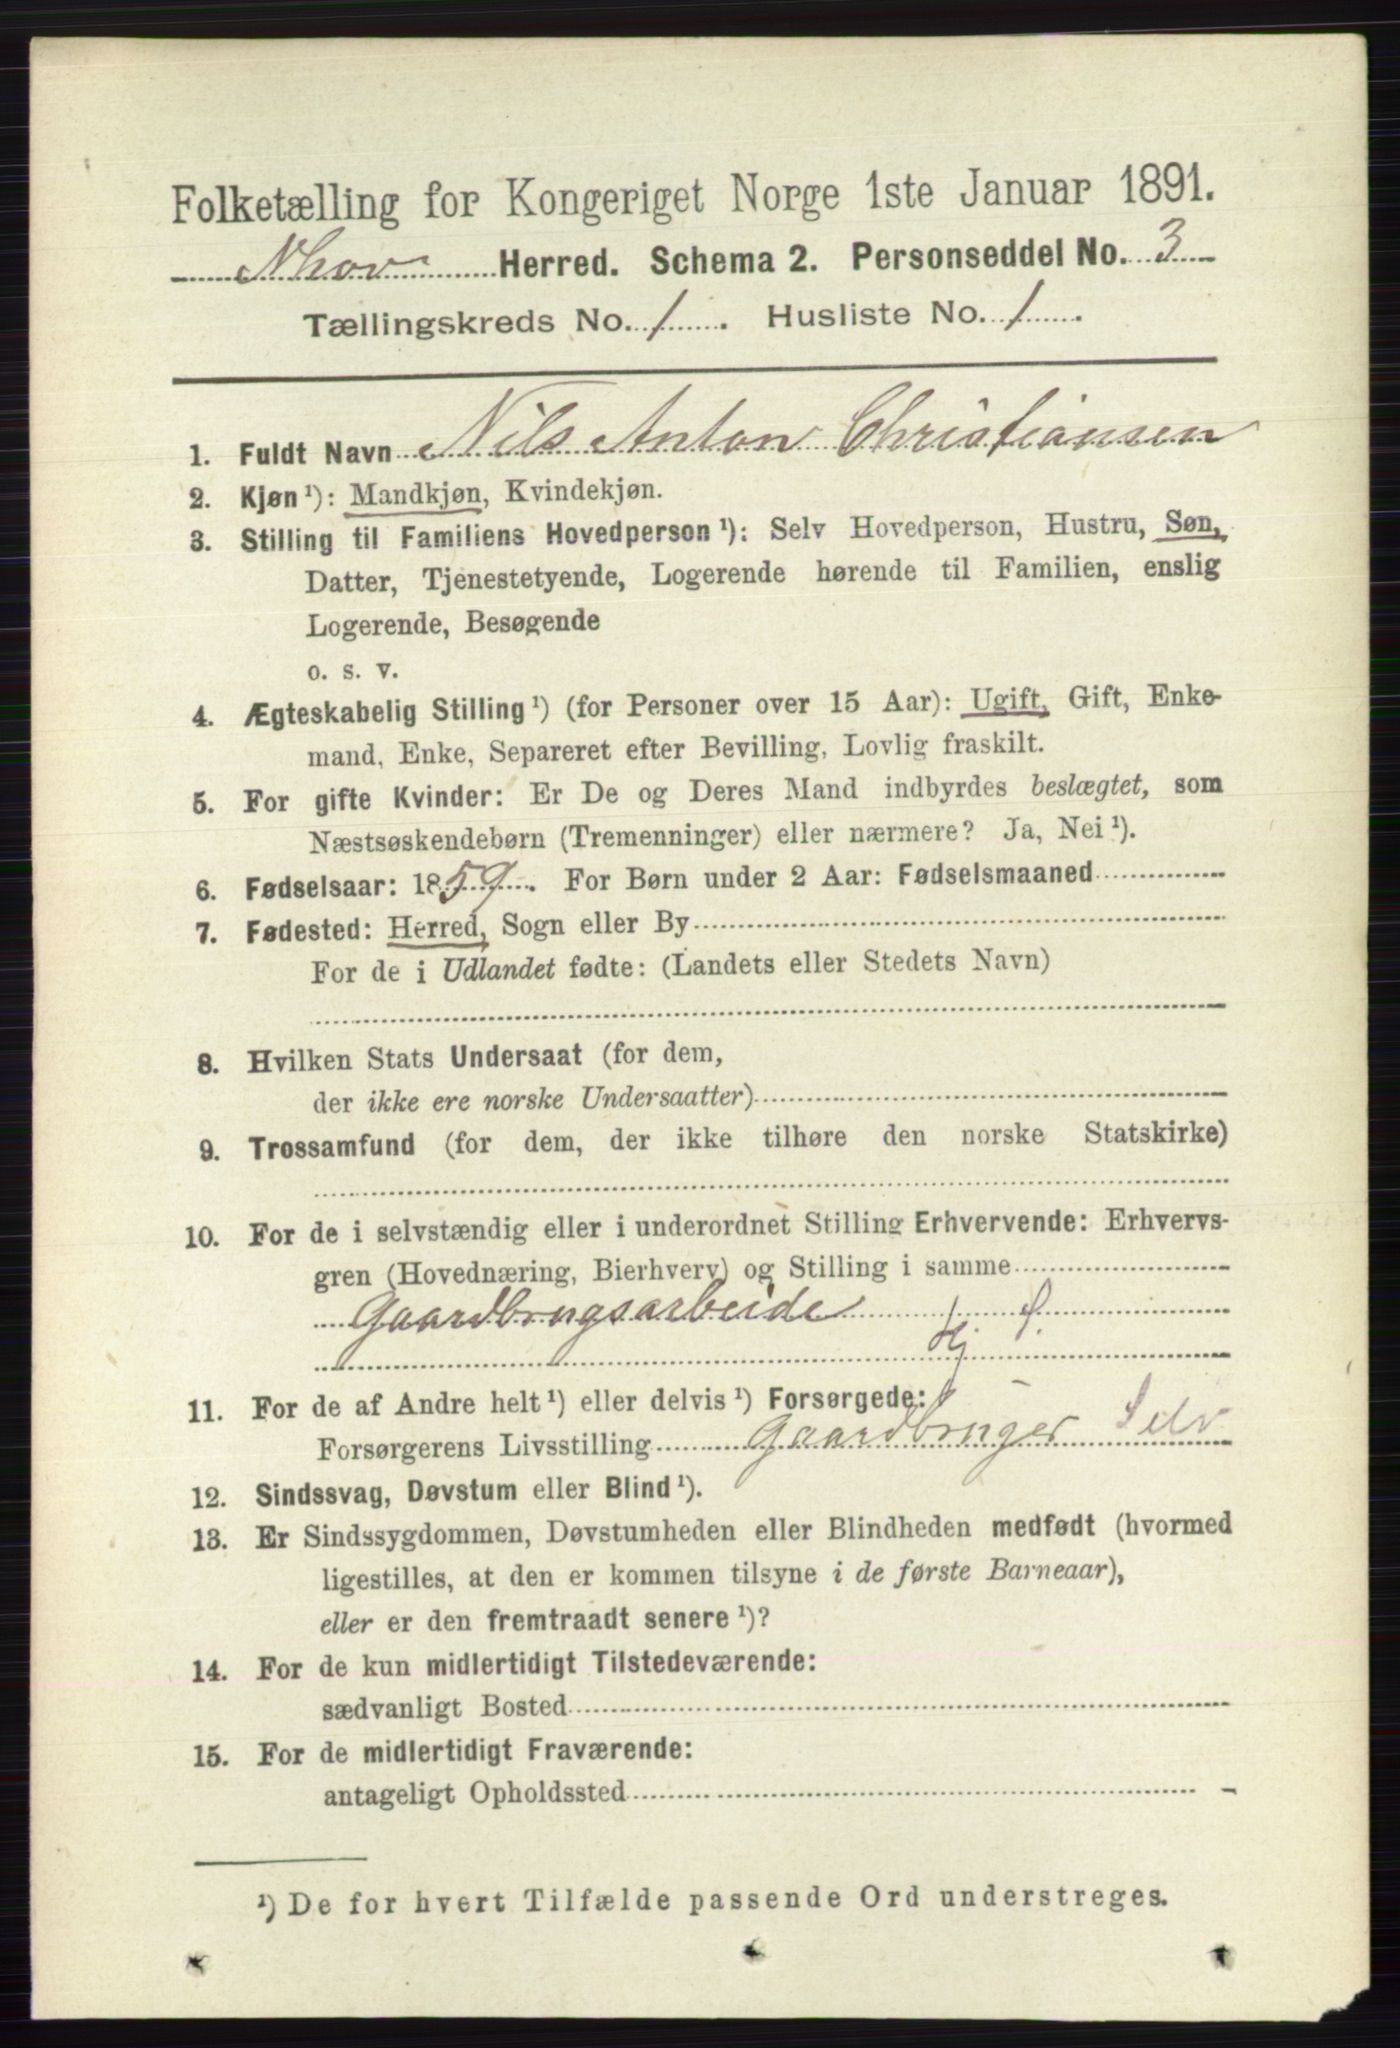 Folketælling for Kongeriget Norge 1ste Januar 1891.
Herred. Schema 2. Personseddel No. 3
Tællingskreds No. 1. Husliste No. 1.
1. Fuldt Navn Nils Anton Christiansen
2. Kjøn ¹): Mandkjøn, Kvindekjøn.
3. Stilling til Familiens Hovedperson ¹): Selv Hovedperson, Hustru, Søn,
Datter, Tjenestetyende, Logerende hørende til Familien, enslig
Logerende, Besøgende
o. s. v.
4. Ægteskabelig Stilling ¹) (for Personer over 15 Aar): Ugift, Gift, Enke-
mand, Enke, Separeret efter Bevilling, Lovlig fraskilt.
5. For gifte Kvinder: Er De og Deres Mand indbyrdes beslægtet, som
Næstsøskendebørn (Tremenninger) eller nærmere? Ja, Nei ¹).
6. Fødselsaar: 1859. For Børn under 2 Aar: Fødselsmaaned
7. Fødested: Herred, Sogn eller By
For de i Udlandet fødte: (Landets eller Stedets Navn)
8. Hvilken Stats Undersaat (for dem,
der ikke ere norske Undersaatter)
9. Trossamfund (for dem, der ikke tilhøre den norske Statskirke)
10. For de i selvstændig eller i underordnet Stilling Erhvervende: Erhvervs-
gren (Hovednæring, Bierhverv) og Stilling i samme
Gaardbrugsarbeide
11. For de af Andre helt ¹) eller delvis ¹) Forsørgede:
Forsørgerens Livsstilling Gaardbruger Selv
12. Sindssvag, Døvstum eller Blind ¹).
13. Er Sindssygdommen, Døvstumheden eller Blindheden medfødt (hvormed
ligestilles, at den er kommen tilsyne i de første Barneaar),
eller er den fremtraadt senere ¹)?
14. For de kun midlertidigt Tilstedeværende:
sædvanligt Bosted
15. For de midlertidigt Fraværende:
antageligt Opholdssted
¹) De for hvert Tilfælde passende Ord understreges.